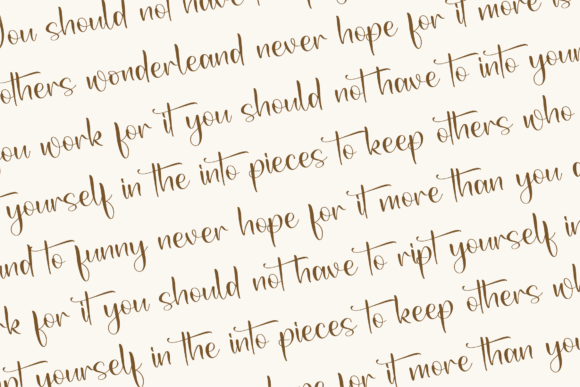 You should not have
others wonderleand never hope for it more
you work for it you should not have to into your
yourself in the into pieces to keep others who
and to funny never hope for it more than you
for it you should not have to ript yourself in
yourself in the into pieces to keep others
for it more than you